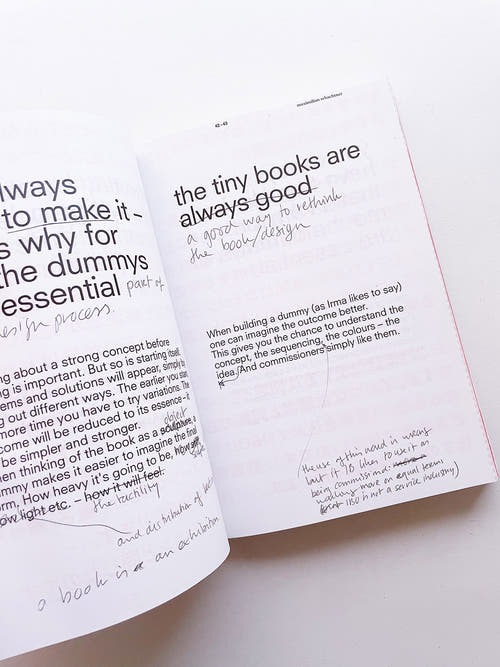 lways
to make it –
s why for
the dummys
essential part of
design process.
ng about a strong concept before
ng is important. But so is starting itself.
ems and solutions will appear, simply by
g out different ways. The earlier you start
more time you have to try variations. The
come will be reduced to its essence – it
be simpler and stronger.
object
en thinking of the book as a sculpture, a
mmy makes it easier to imagine the final
rm. How heavy it's going to be, how
ow light etc. – how it will feel.
the tactility
and distribution of
a book is an exhibition
42–43
maximilian schachtner
the tiny books are
always good
a good way to rethink
the book/design
When building a dummy (as Irma likes to say)
one can imagine the outcome better.
This gives you the chance to understand the
concept, the sequencing, the colours – the
idea. And commissioners simply like them.
the use of this word is wrong
but if IB likes to use it as
being commissioned.
working more on equal terms
(IBO is not a service industry)